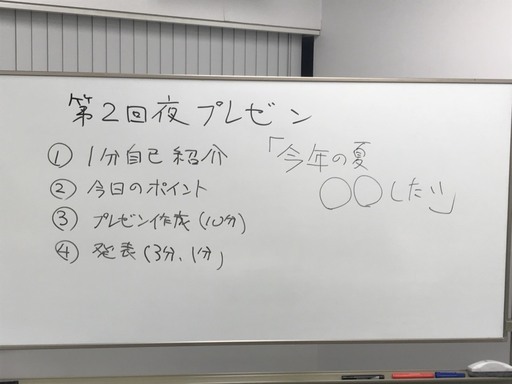 第2回夜プレゼン
① 1分自己紹介
② 今日のポイント
③ プレゼン作成(10分)
④ 発表(3分、1分)
「今年の夏
〇〇したい」